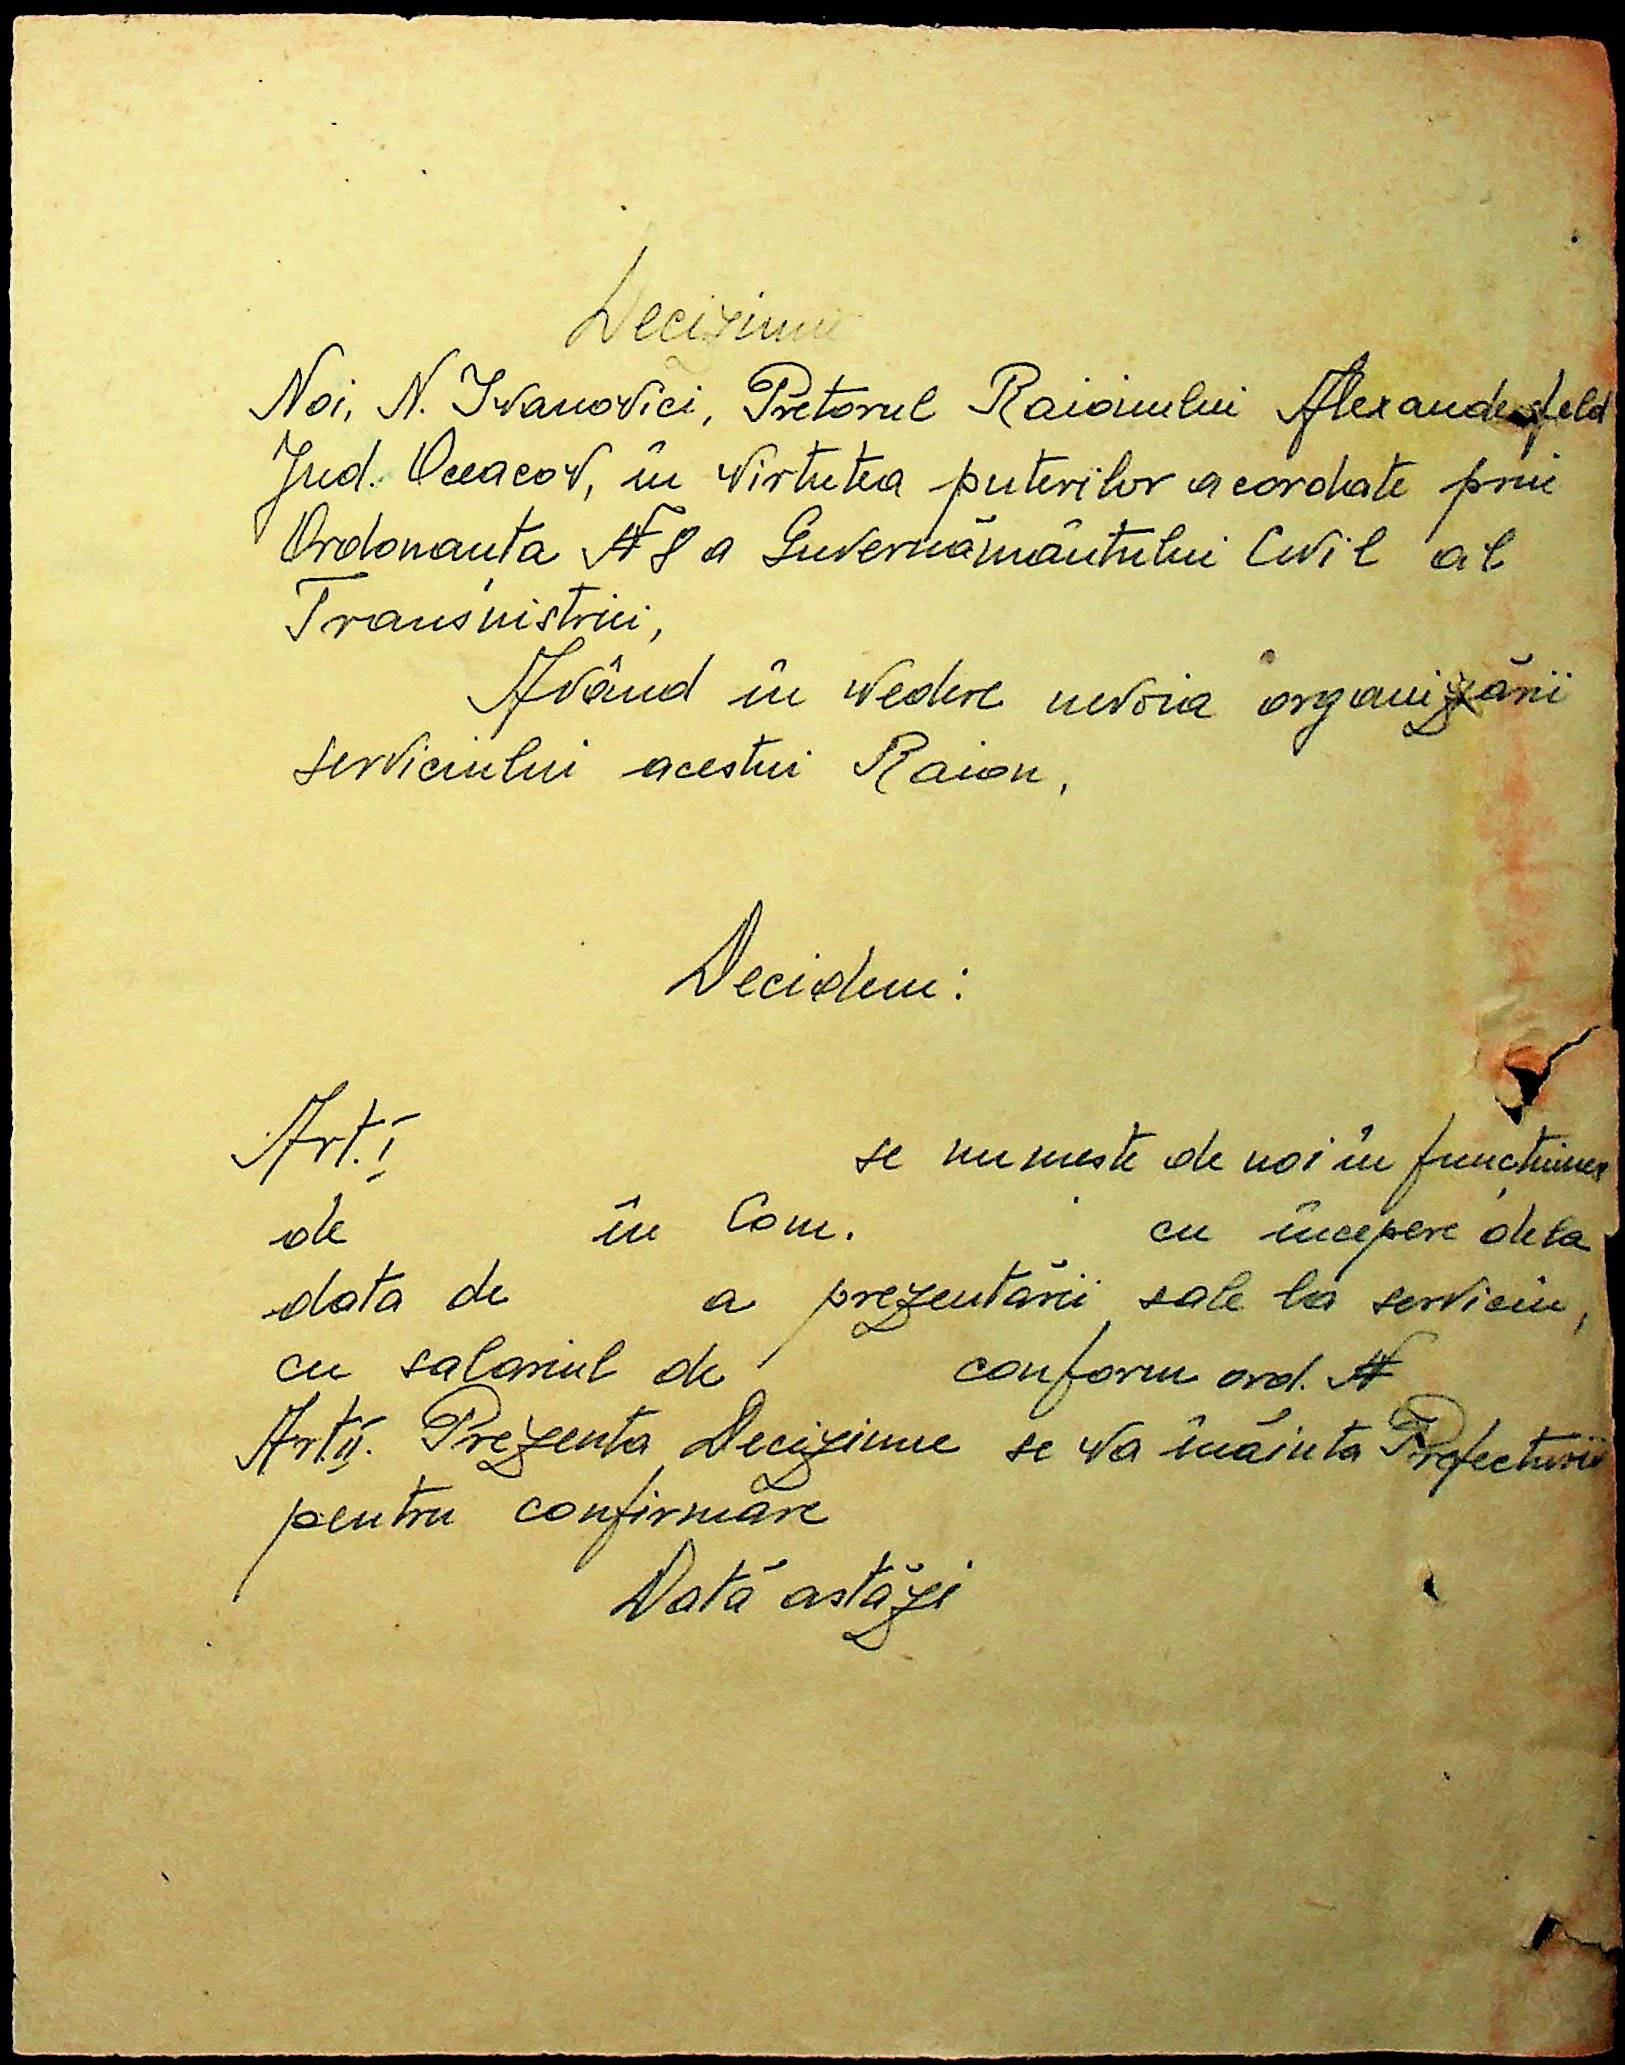 Deciziune
Noi, N. Ivanovici, Pretorul Raionului Alexanderfeld
Jud. Oceacov, în virtutea puterilor acordate prin
Ordonanța № 8 a Guvernământului Civil al
Transnistriei,
Având în vedere nevoia organizării
serviciului acestui Raion,
Decidem:
Art. I se numeste de noi în funcțiunea
de în Com. cu începere dela
data de a prezentării sale la serviciu,
cu salariul de conform ord. №
Art. II. Prezenta Deciziune se va înăinta Prefecturii
pentru confirmare
Dată astăzi